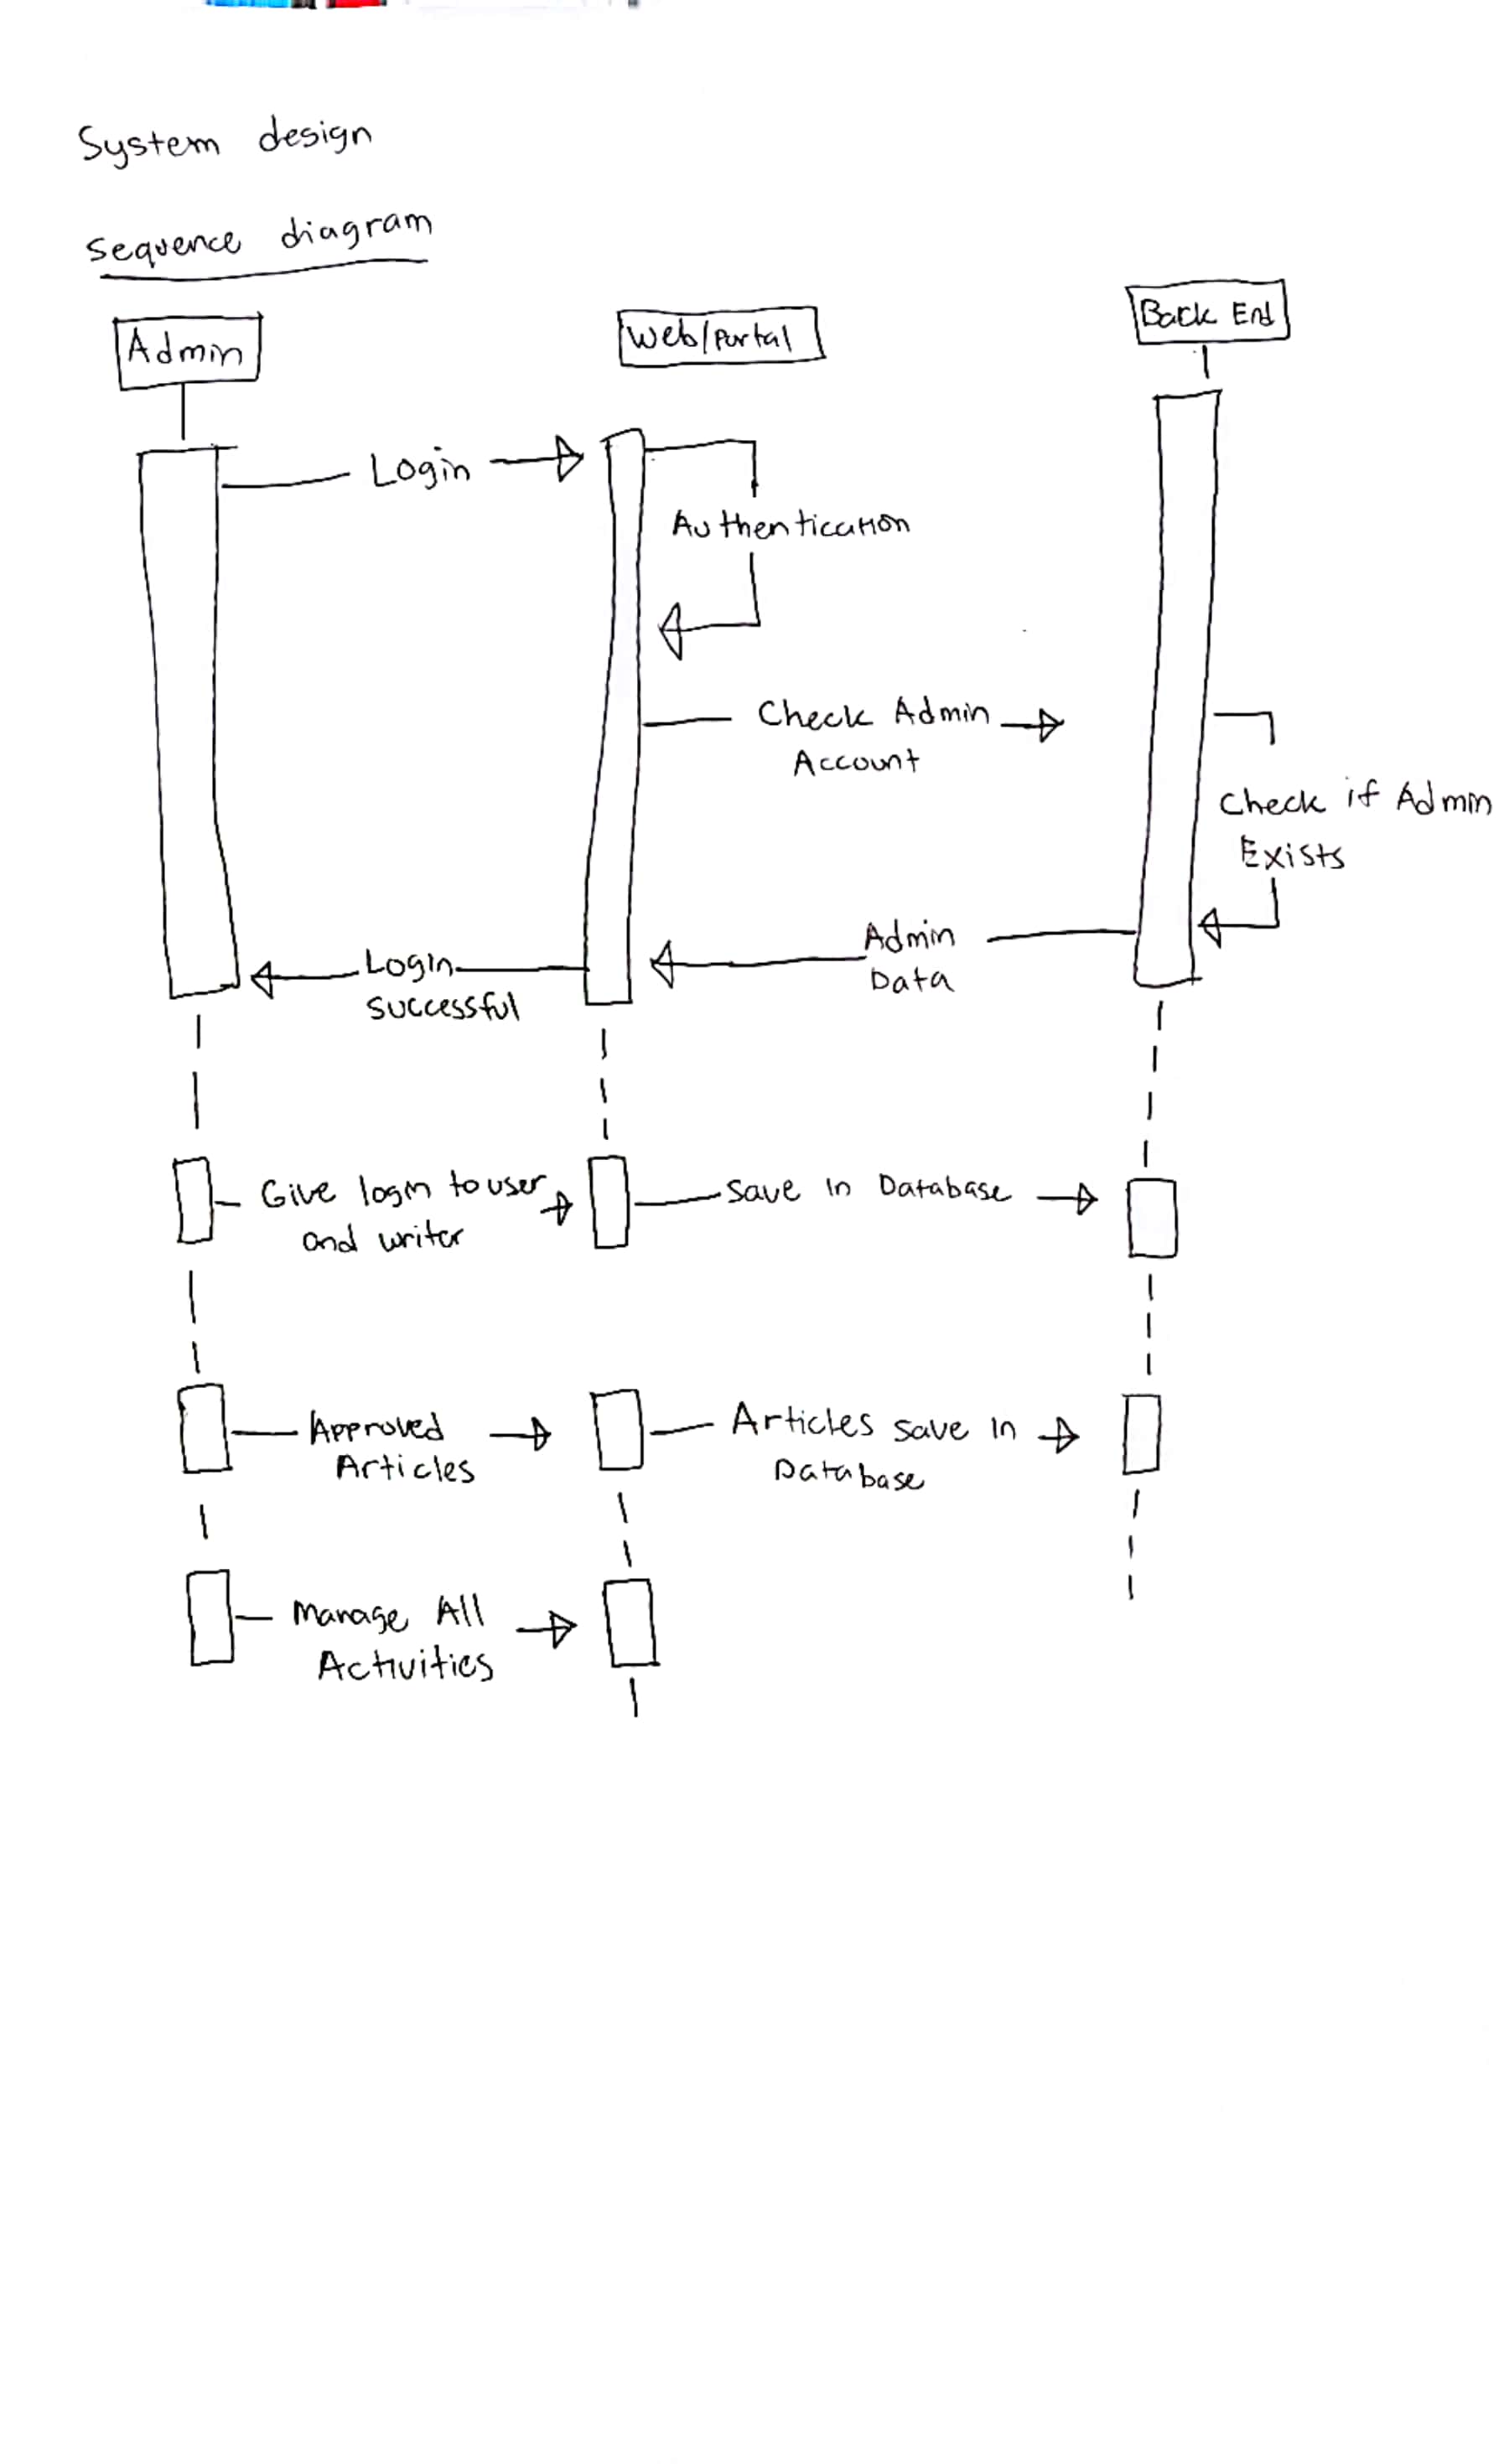 System design
Sequence diagram
Admin
Web/Portal
Back End
Login
Authentication
Check Admin
Account
Check if Admin
Exists
Admin
Data
Login
Successful
Give login to user
and writer
Save in Database
Approved
Articles
Articles save in
Database
Manage All
Activities